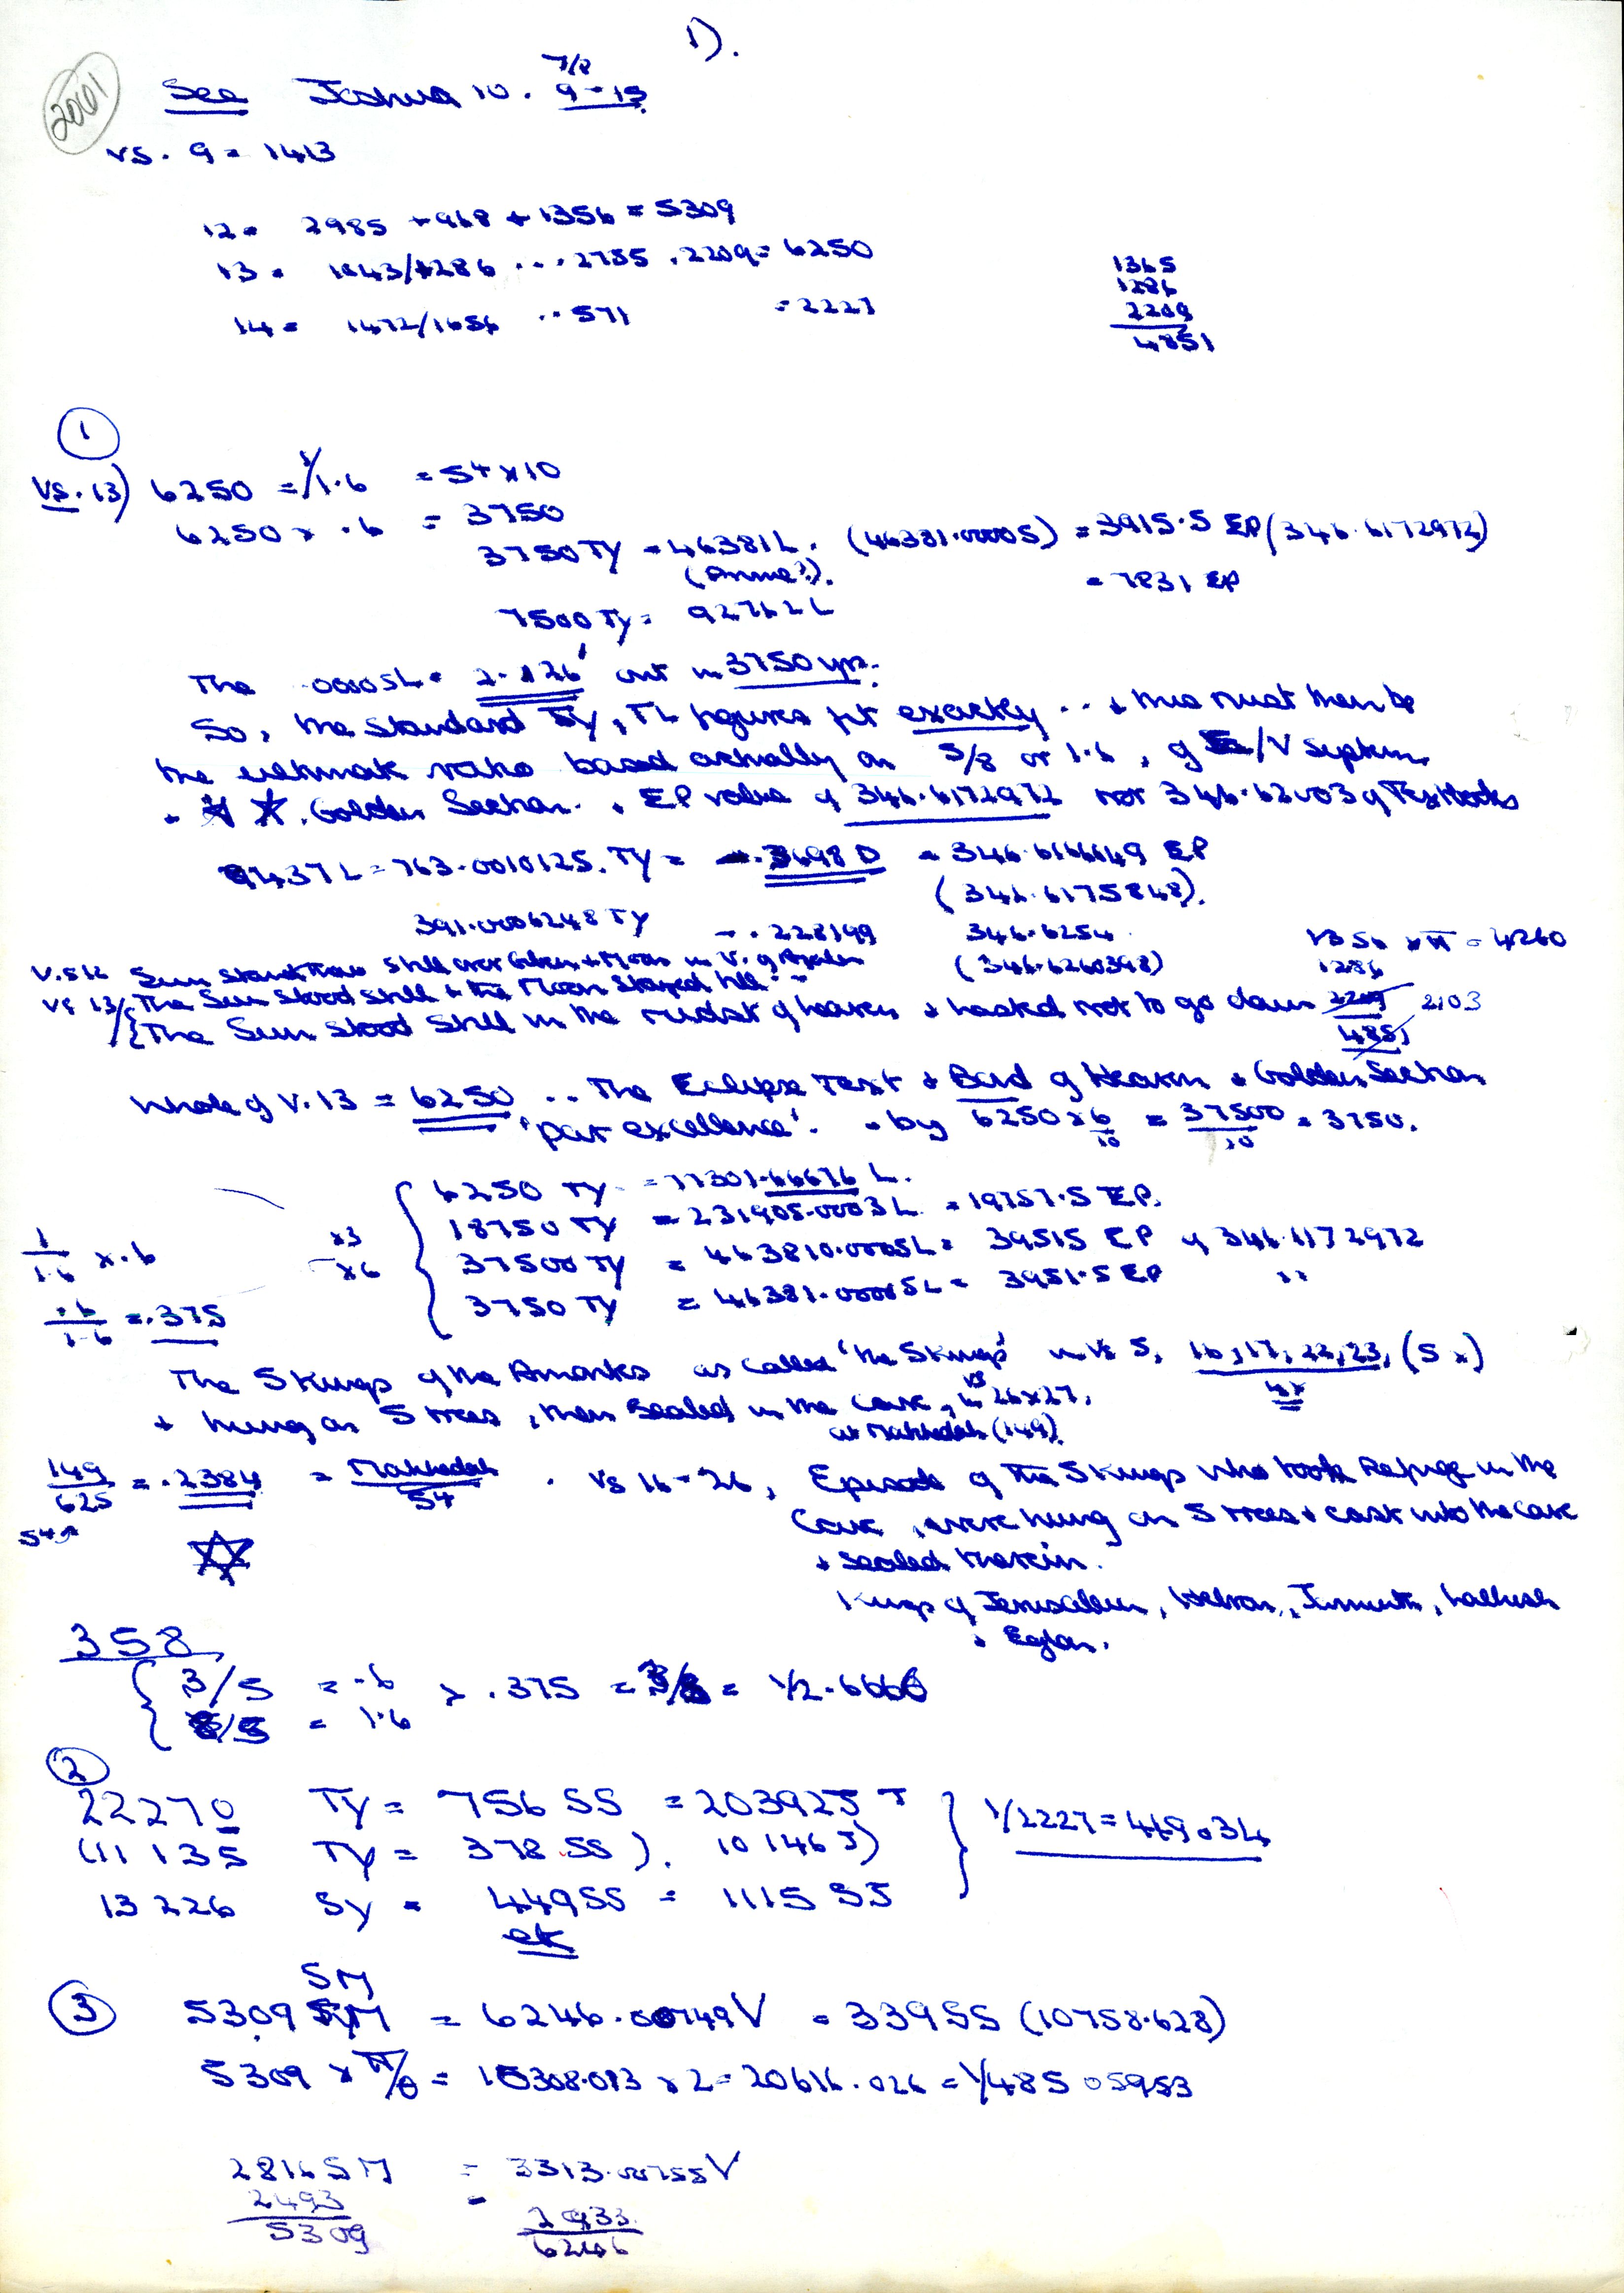 1).
2001
See Joshua 10. 7/8 9-15
vs. 9 = 1413
12 = 2985 + 968 + 1356 = 5309
13 = 1643/1286 ... 2755 . 2209 = 6250
14 = 1472/1656 .. 571 = 2227
1365
1286
2209
4851
1
vs. 13) 6250 = 1/1.6 = 5⁴ x 10
6250 x .6 = 3750
3750 Ty = 46381 L. (46381.00005) = 3915.5 EP (346.6172972)
= 7831 EP
7500 Ty = 92762 L
The .00005L = 2.126' out in 3750 yrs.
So, the standard Ty, TL figures fit exactly .. + this must then be
the ultimate ratio based actually on 5/8 or 1.6, of /V system
+ ☆. Golden Section. + EP value of 346.6172972 not 346.62003 of Textbooks
9437 L = 763.0010125 Ty = .3698 D = 346.6166649 EP
(346.6175848).
391.0006248 Ty = .228199 346.6254
(346.6260398)
1356 x π = 4260
1286
2209 2103
4851
V.s 12 Sun Stand Thou Still over Gibeon + Moon in V. of Ajalon
Vs 13/ {The Sun Stood Still + the Moon Stayed till..
{The Sun Stood Still in the midst of heaven + hasted not to go down
Whole of V.13 = 6250 .. The Eclipse Text + Bard of Heaven + Golden Section
'par excellence'. - by 6250 x 6/10 = 37500/10 = 3750.
1/1.6 x .6
.6/1.6 = .375
x3
x6
6250 Ty = 77301.66676 L.
18750 Ty = 231905.0003 L = 19757.5 EP.
37500 Ty = 463810.0005L = 39515 EP of 346.6172972
3750 Ty = 46381.00005L = 3951.5 EP "
The 5 Kings of the Amorites as called 'the 5 Kings' in vs 5, 16, 17, 22, 23, (5x)
4x
+ hung on 5 trees, then Sealed in the Cave, in vs 26 x 27,
at Makkedah (149).
149/625 = .2384 = Makkedah/5⁴ . Vs 16-26, Episode of the 5 Kings who took Refuge in the
5⁴
Cave, were hung on 5 trees + cast into the Cave
+ sealed therein.
Kings of Jerusalem, Hebron, Jarmuth, Lachish
+ Eglon.
358
3/5 = .6 > .375 = 3/8 = 1/2.6666
8/5 = 1.6
2
22270 Ty = 756 SS = 20392J
(11135 Ty = 378 SS). 10146 J)
13226 Sy = 449SS = 11155J
1/2227 = 449034
etc
3
5309 SM = 6246.00749V = 339SS (10758.628)
5309 x π/ϕ = 10308.013 x 2 = 20616.026 = 1/48505953
2816 SM = 3313.00755V
2493 = 2933
5309 6246